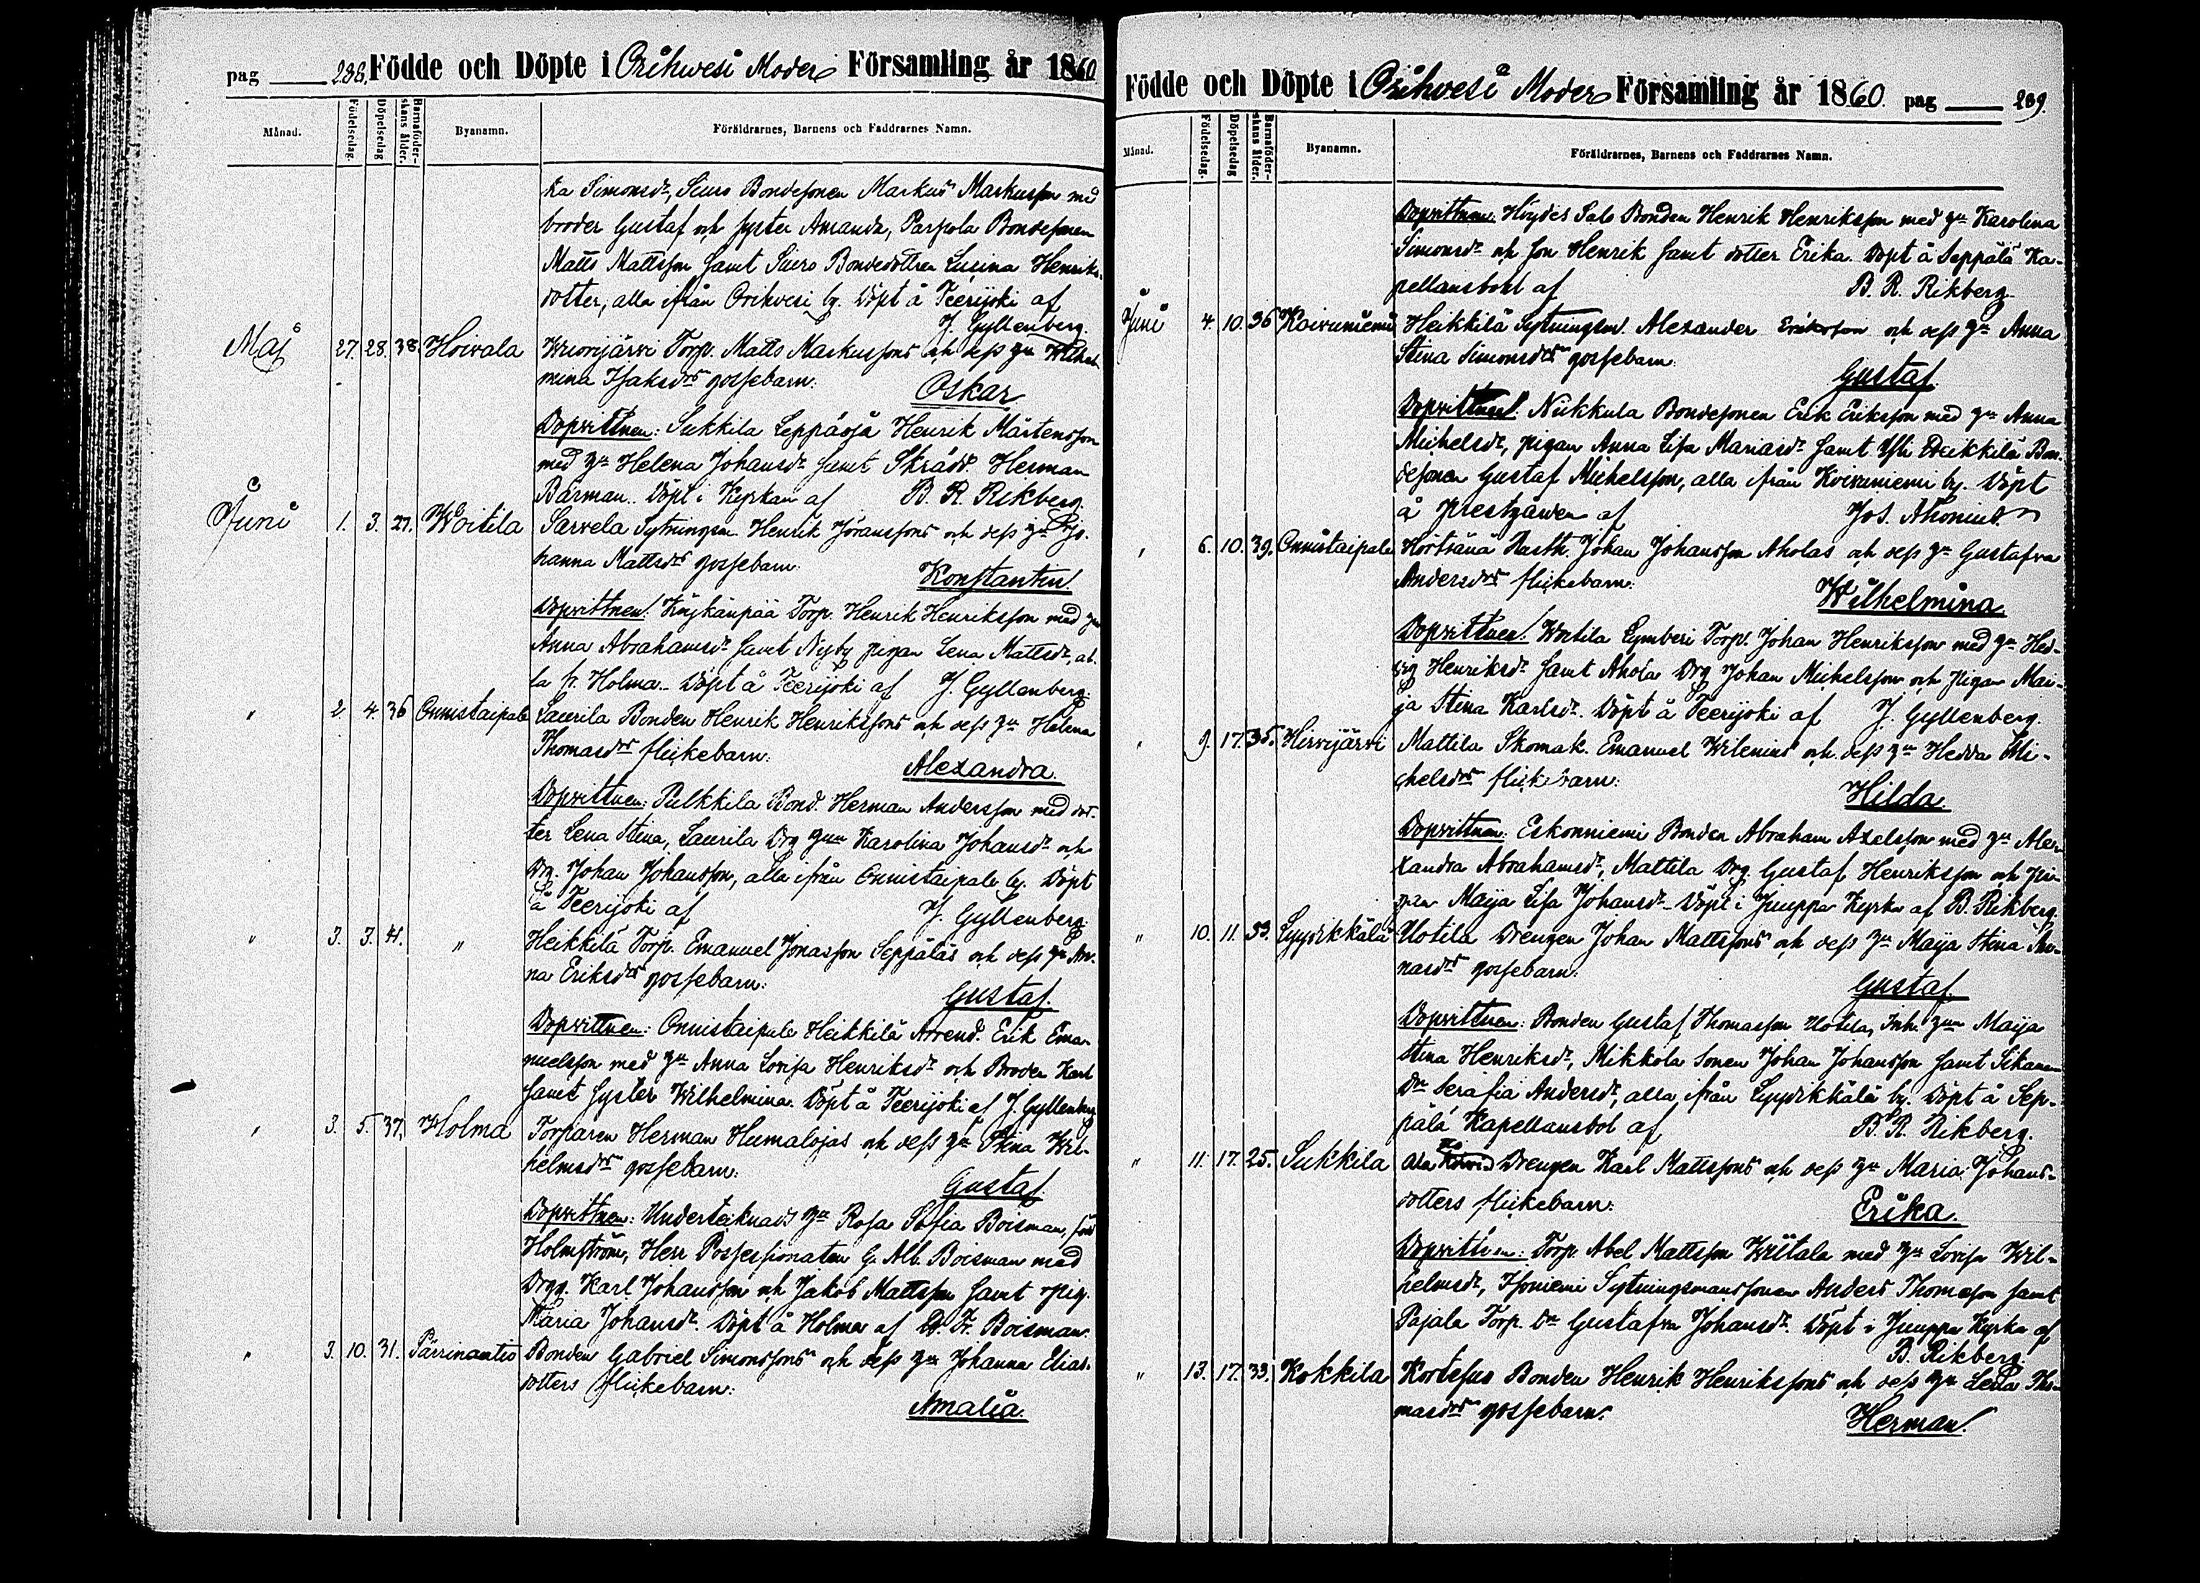 pag 288. Födde och Döpte i Orihwesi Moder Församling år 1860
Månad. Födelsedag. Döpelsedag Barnaföderskans ålder. Byanamn. Föräldrarnes, Barnens och Faddrarnes Namn.
ka Simonsdr, Siuro Bondesonen Markus Markusson med
broder Gustaf och syster Amanda, Parpola Bondesonen
Matts Mattsson samt Siuro Bondedottren Lusina Henriks-
dotter, alla ifrån Orihvesi by. Döpt å Teerijoki af
J. Gyllenberg.
Maj 27. 28. 38. Hoivala Wuorijärvi Torp. Matts Markussons och dess hu Wilhel
mina Isaksdrs gossebarn:
Oskar
Dopvittnen: Sukkila Leppäoja Henrik Mårtensson
med hu Helena Johansdr samt Skrädd. Herman
Barman. Döpt i Kyrkan af B. R. Rikberg.
Juni 1. 3. 27. Woitila Sarvela Sytningsm. Henrik Jöranssons och dess hu Jo-
hanna Mattsdrs gossebarn:
Konstantin.
Dopvittnen: Torp. Henrik Henriksson med hu
Anna Abrahamsdr samt Nyby pigan Lena Mattsdr, al-
la fr. Holma. Döpt å Teerijoki af J. Gyllenberg.
" 2. 4. 36 Onnistaipale Laurila Bonden Henrik Henrikssons och dess hu Helena
Thomasdrs flickebarn:
Alexandra.
Dopvittnen: Pulkkila Bond. Herman Andersson med dot-
ter Lena Stina, Laurila Drg hun Karolina Johansdr och
Drg. Johan Johansson, alla ifrån Onnistaipale by. Döpt
å Teerijoki af J. Gyllenberg.
" 3. 3. 41. " Heikkilä Torp. Emanuel Jonasson Seppäläs och dess hu An-
na Eriksdrs gossebarn:
Gustaf.
Dopvittnen: Onnistaipale Heikkilä Arrend. Erik Ema-
nuelsson med hu Anna Lovisa Henriksdr och Broder Karl
samt syster Wilhelmina. Döpt å Teerijoki af J. Gyllenberg
" 3. 5. 37. Holma Torparen Herman Humalojas och dess hu Stina Wil-
helmsdrs gossebarn:
Gustaf
Dopvittnen: Undertecknads hu Rosa Sofia Boisman, född
Holmström, Herr Possessionaten G. Alb. Boisman med
Drgg. Karl Johansson och Jakob Mattsson samt pig.
Maria Johansdr. Döpt å Holma af Fr. Boisman.
" 3. 10. 31. Pärrinantio Bonden Gabriel Simonssons och dess hu Johanna Elias-
dotters flickebarn:
Amalia.
Födde och Döpte i Orihvesi Moder Församling år 1860. pag 289.
Månad. Födelsedag. Döpelsedag Barnaföderskans ålder. Byanamn. Föräldrarnes, Barnens och Faddrarnes Namn.
Dopvittnen: Salo Bonden Henrik Henriksson med hu Karolina
Simonsdr och son Henrik samt dotter Erika. Döpt å Seppälä Ka-
pellansbohl af B. R. Rikberg.
Juni 4. 10. 36 Koivuniemi Heikkilä Sytningsm. Alexander Eriksson och dess hu Anna
Stina Simonsdrs gossebarn:
Gustaf.
Dopvittnen: Niikkula Bondesonen Erik Eriksson med hu Anna
Michelsdr, pigan Anna Lisa Mariasdr samt Heikkilä Bon-
desonen Gustaf Michelsson, alla ifrån Koivuniemi by. Döpt
å prestgården af Jos. Ahonius.
" 6. 10. 39. Onnistaipale Johan Johansson Aholas och dess hu Gustafva
Andersdrs flickebarn:
Wilhelmina.
Dopvittnen: Woitila Torp. Johan Henriksson med hu Hed-
vig Henriksdr samt Ahola Drg Johan Michelsson och pigan Mai-
ja Stina Karlsdr. Döpt å Teerijoki af J. Gyllenberg.
" 9. 17. 35. Hirvijärvi Mattila Skomak. Emanuel Wilenius och dess hu Hedda Mi-
chelsdrs flickebarn:
Hilda
Dopvittnen: Eskonniemi Bonden Abraham Axelsson med hu Alex-
xandra Abrahamsdr, Mattila Drg. Gustaf Henriksson och pi-
gan Maija Lisa Johansdr. Döpt i Juuppa Kyrka af B. Rikberg.
" 10. 11. 33. Lyydikkälä Uotila Drengen Johan Mattssons och dess hu Maija Stina An-
nasdrs gossebarn:
Gustaf.
Dopvittnen: Bonden Gustaf Thomasson Uotila, Inh. hun Maija
Stina Henriksdr, Mikkola sonen Johan Johansson samt
Dr Serafia Andersdr, alla ifrån Lyydikkälä by. Döpt å Sep-
pälä Kapellansbol af B. R. Rikberg.
" 11. 17. 25. Sukkila Drengen Karl Mattssons och dess hu Maria Johans-
dotters flickebarn:
Erika.
Dopvittnen: Torp. Abel Mattsson Wiitala med hu Lovisa Wil-
helmsdr, Isoniemi Sytningsmanssonen Anders Thomasson samt
Pajala Torp. Dr Gustafva Johansdr. Döpt i Juuppa Kyrka af
B. Rikberg.
" 13. 17. 33. Kokkila Kortesuo Bonden Henrik Henrikssons och dess hu Lena Tho-
masdrs gossebarn:
Herman.